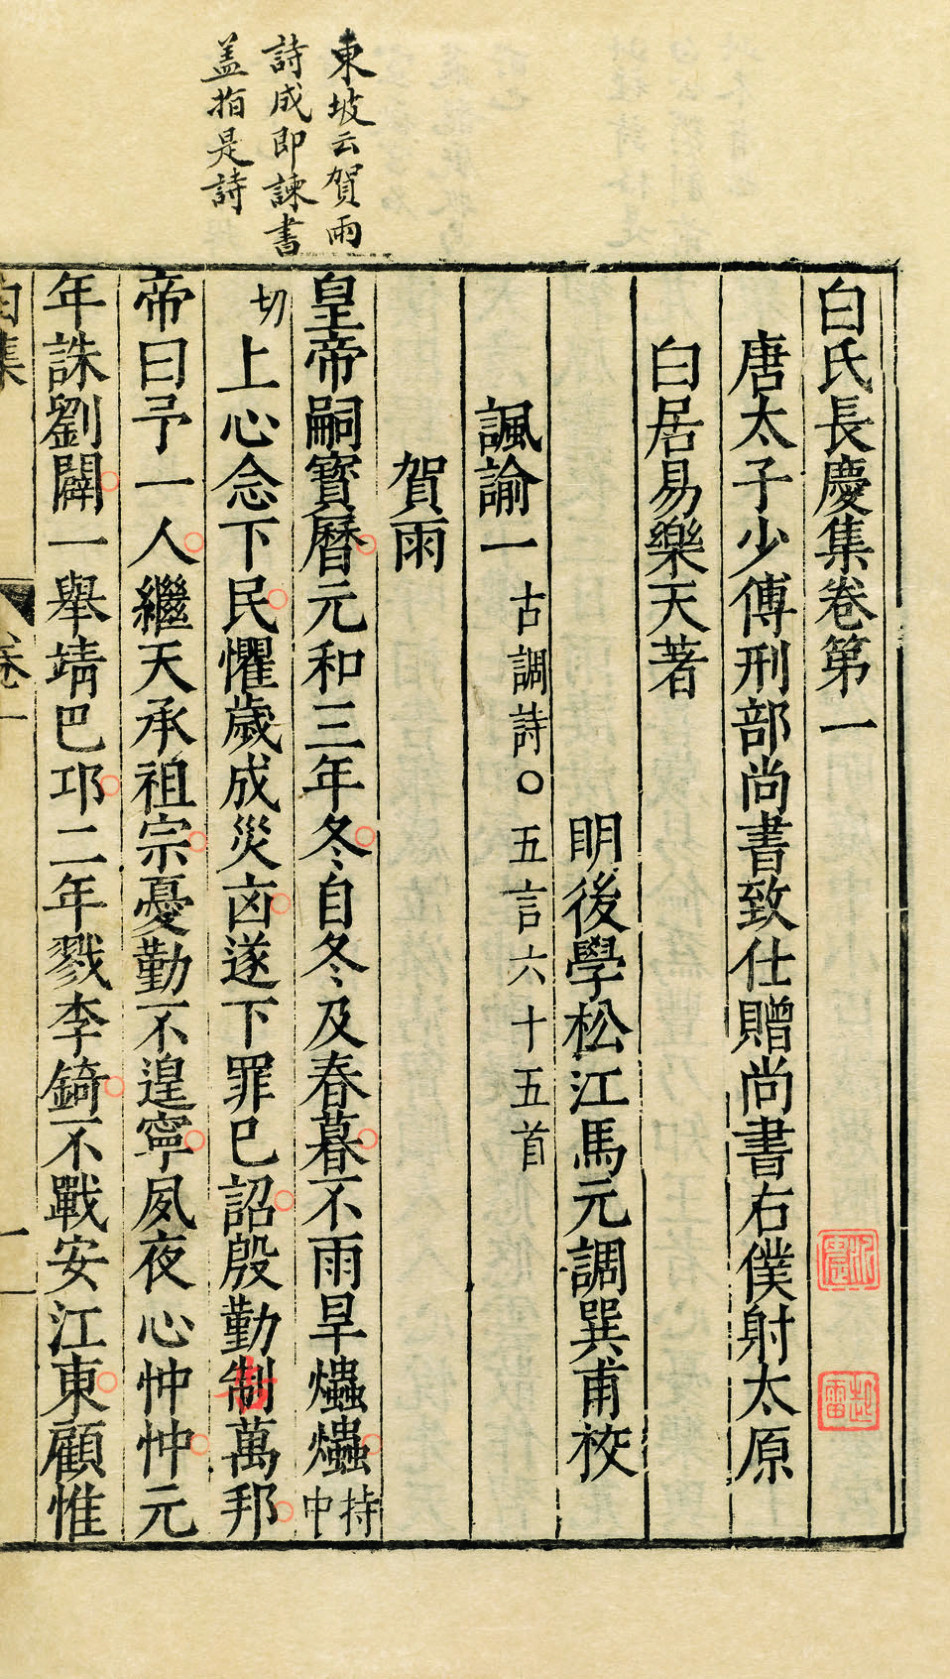 東坡云賀雨
詩成即諫書
盖指是詩
白氏長慶集卷第一
唐太子少傅刑部尚書致仕贈尚書右僕射太原
白居易樂天著
眀後學松江馬元調巽甫校
諷諭一 古調詩○五言六十五首
賀雨
皇帝嗣寶曆元和三年冬自冬及春暮不雨旱爞爞持中
切上心念下民懼歲成災㐫遂下罪己詔殷勤制萬邦
帝曰予一人繼天承祖宗憂勤不遑寧夙夜心忡忡元
年誅劉闢一舉靖巴邛二年戮李錡不戰安江東顧惟